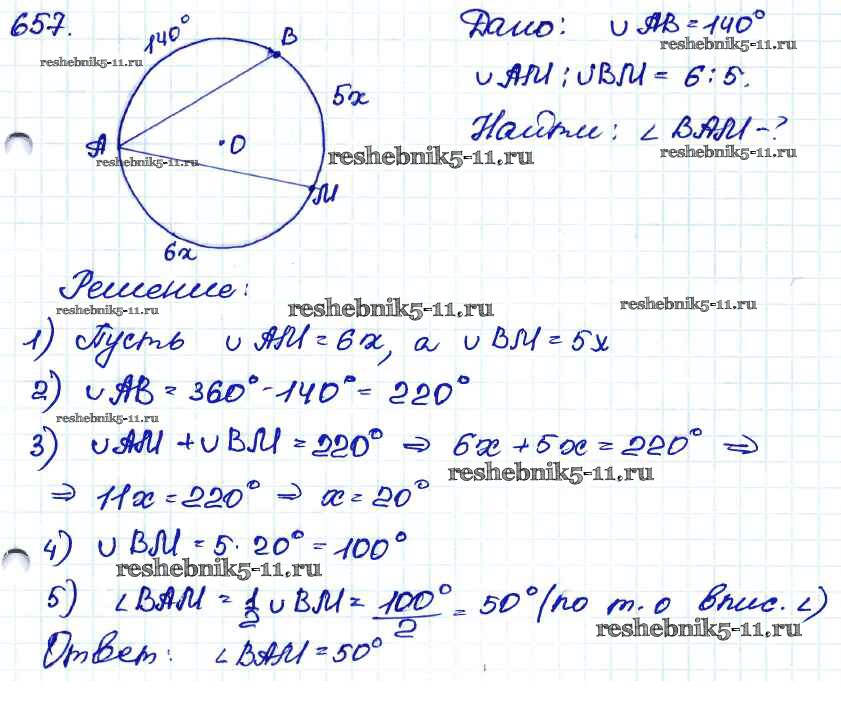 657.
140°
B
Дано: ∪ AB = 140°
reshebnik5-11.ru
reshebnik5-11.ru
∪ AM : ∪BM = 6 : 5.
5x
Найти: ∠ BAM - ?
A
O
reshebnik5-11.ru
reshebnik5-11.ru
reshebnik5-11.ru
M
6x
Решение:
reshebnik5-11.ru
reshebnik5-11.ru
reshebnik5-11.ru
1) Пусть ∪ AM = 6x, а ∪ BM = 5x
2) ∪ AB = 360° - 140° = 220°
reshebnik5-11.ru
3) ∪AM + ∪ BM = 220° ⇒ 6x + 5x = 220° ⇒
reshebnik5-11.ru
⇒ 11x = 220° ⇒ x = 20°
4) ∪ BM = 5 · 20° = 100°
reshebnik5-11.ru
5) ∠BAM = 1/2 ∪ BM = 100°/2 = 50° (по т. о впис. ∠)
reshebnik5-11.ru
Ответ: ∠BAM = 50°